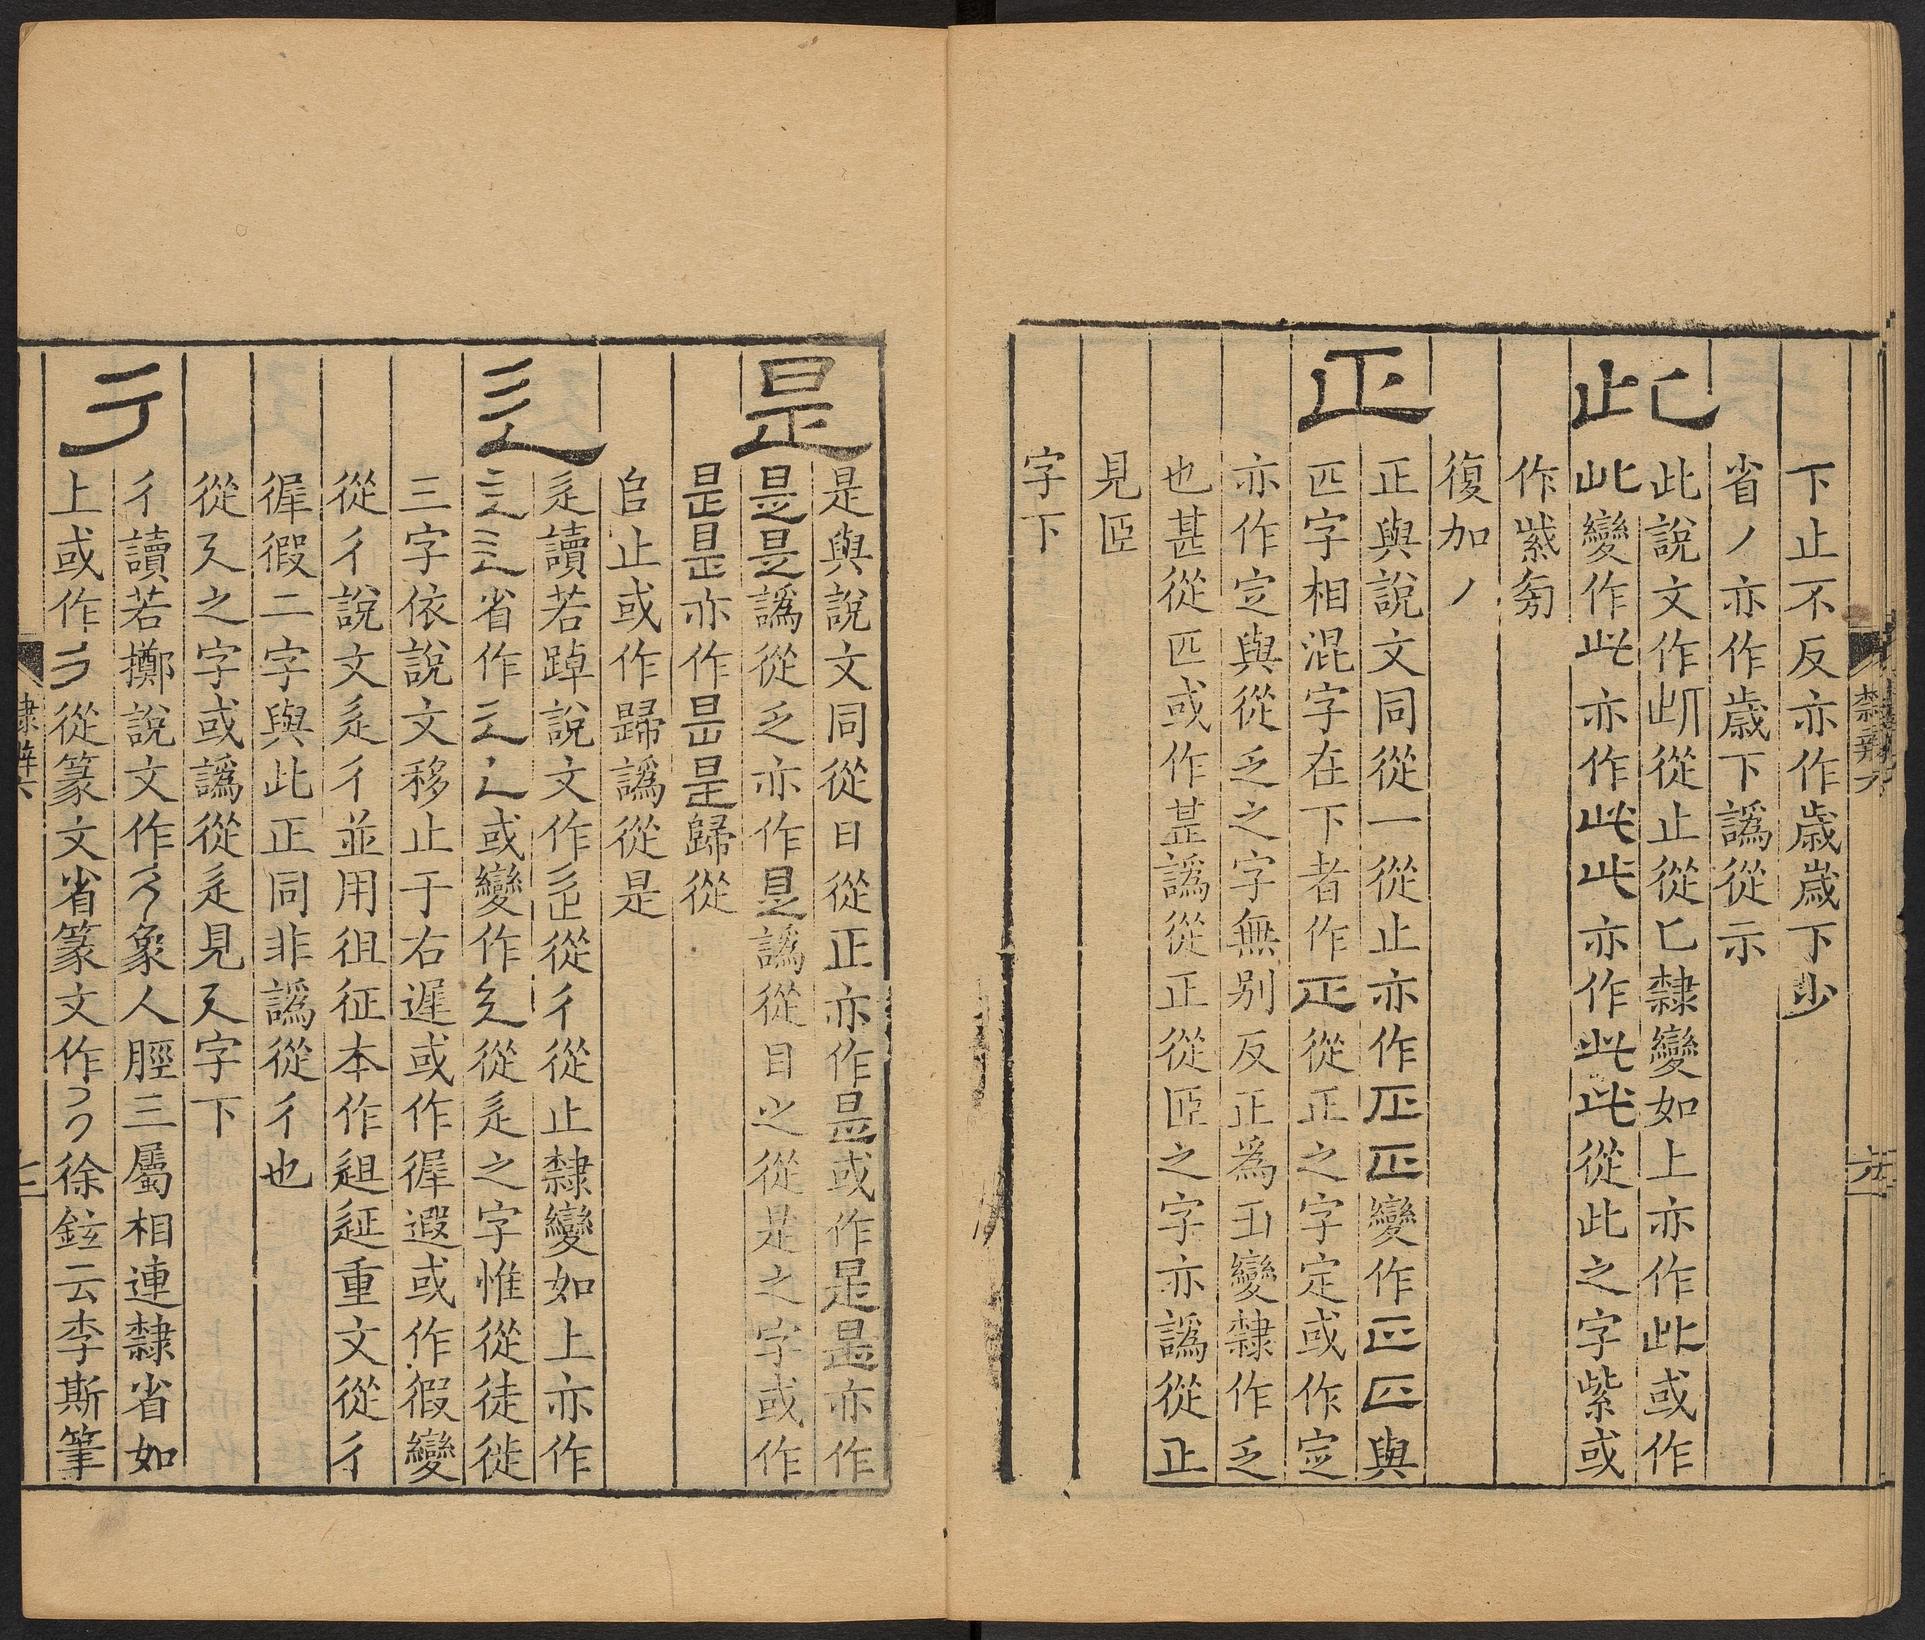 下止不反亦作歳歲下少
省丿亦作歳下譌從示
此
此說文作從止從匕隸變如上亦作此或作
此變作此亦作此此亦作此此從此之字紫或
作紫
復加丿
正
正與說文同從一從止亦作正正變作正正與
匹字相混字在下者作正從正之字定或作㝎
亦作㝎與從乏之字無别反正為𠀟變隸作乏
也甚從匹或作甚譌從正從匝之字亦譌從正
見匝
字下
隸辨六
是
是與說文同從日從正亦作是或作是是亦作
是是譌從乏亦作是譌從目之從是之字或作
是是亦作是是歸從
𠂤止或作歸譌從是
辵
辵讀若踔說文作辵從彳從止隸變如上亦作
省作辶或變作從辵之字惟從徒徙
三字依說文移止于右遲或作徲遐或作徦變
從彳說文辵彳並用徂征本作䢐延重文從彳
徲徦二字與此正同非譌從彳也
從廴之字或譌從辵見廴字下
彳
彳讀若擲說文作彳象人脛三屬相連隸省如
上或作從篆文省篆文作徐鉉云李斯筆
隸辨六
七